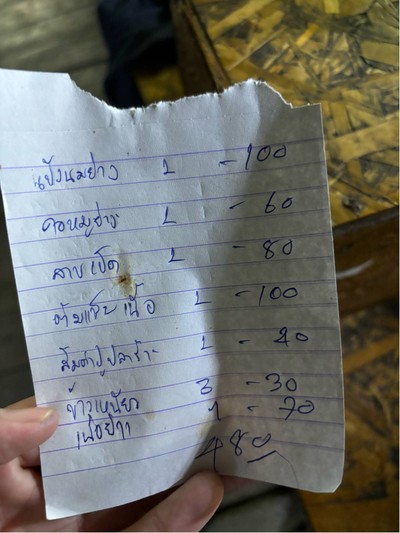 แป้งนมย่าง 1 - 100
คอหมูย่าง 1 - 60
ลาบเป็ด 1 - 80
ต้มแซ่บเนื้อ 1 - 100
ส้มตำปูปลาร้า 1 - 40
ข้าวเหนียว 3 - 30
เนื้อย่าง 1 - 70
480